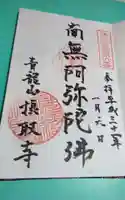 奉拝 平成三十一年
一月六日
南無阿弥陀佛
青龍山 摂取寺